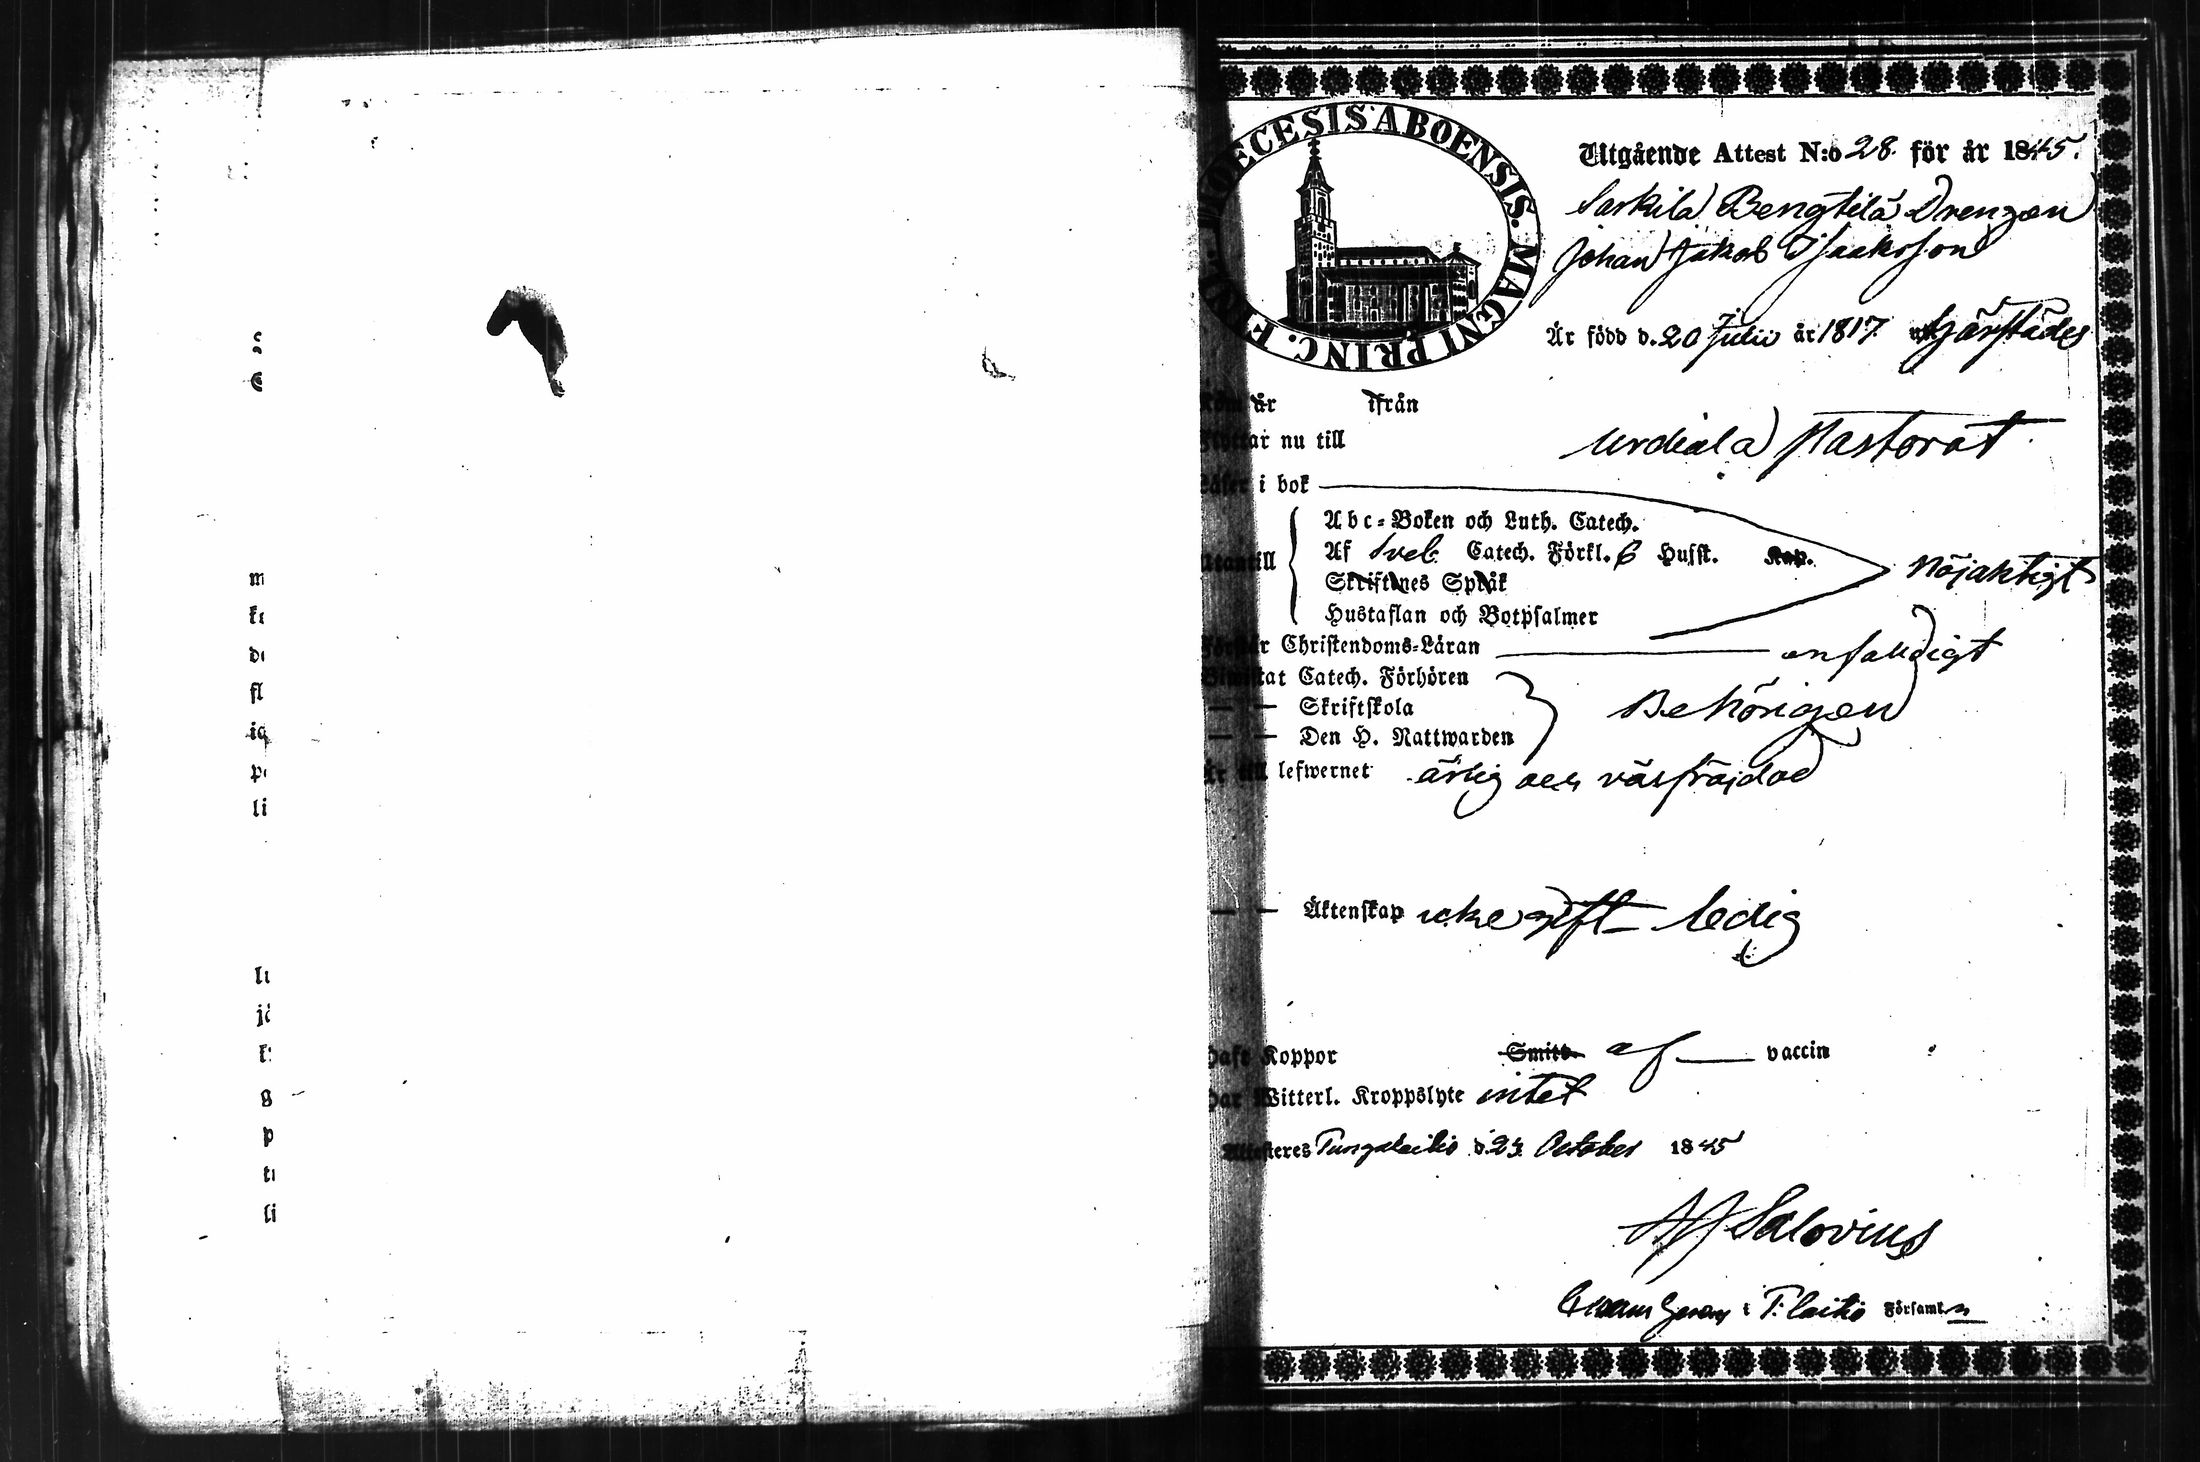 DIOECESIS ABOENSIS. MAGNI PRINC. FINL.
Utgående Attest N:o 28. för år 1845.
Sarkila Bengtilä Drengen
Johan Jakob Isaaksson
Är född d. 20 Julii år 1817. härstädes
Kom år ifrån
Flyttar nu till Urdiala Pastorat
Läser i bok
Abc-Boken och Luth. Catech.
Utantill Af Sveb. Catech. Förkl. 6 Husst. Kap. nöjaktigt
Skriftenes Språk
Hustaflan och Botpsalmer
Förstår Christendoms-Läran enfaldigt
Biwistat Catech. Förhören
— — Skriftskola Behörigen
— — Den H. Nattwarden
Är till lefwernet ärlig och väl fräjdad
— — Äktenskap icke gift ledig
Haft Koppor Smitt. af vaccin
Har Witterl. Kroppslyte intet
Attesteres Pungalaitio d. 23 October 1845
Salovius
i P:laitio Församl.
m
de
fl
ig
li
p
li